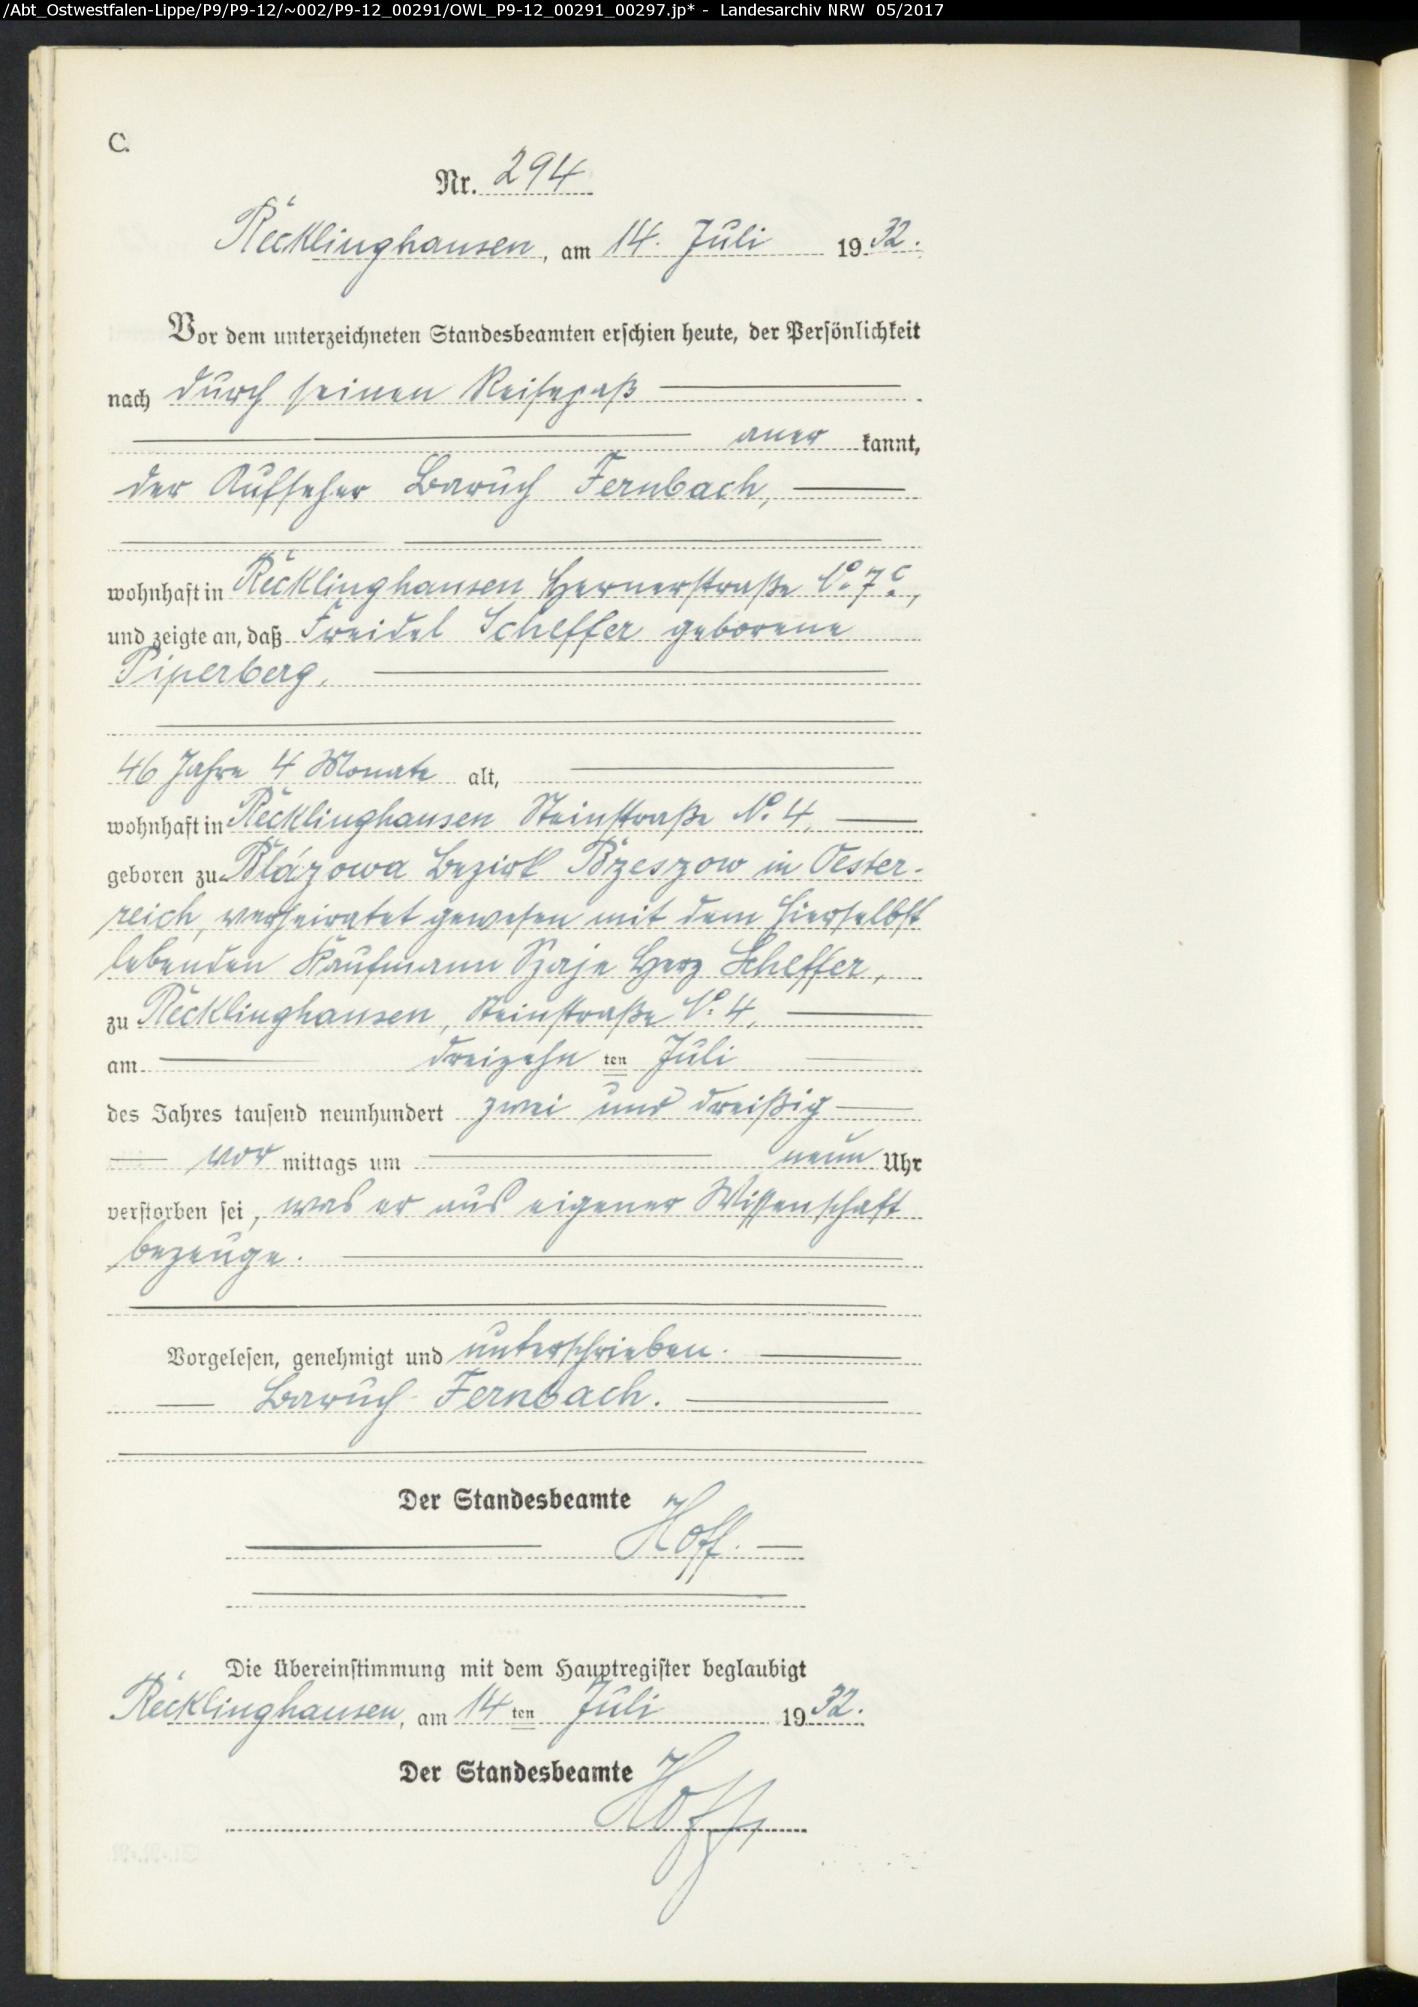 /Abt_Ostwestfalen-Lippe/P9/P9-12/~002/P9-12_00291/OWL_P9-12_00291_00297.jp* - Landesarchiv NRW 05/2017
C.
Nr. 294
Recklinghausen, am 14. Juli 1932.
Vor dem unterzeichneten Standesbeamten erschien heute, der Persönlichkeit
nach durch seinen Reisepaß
aner kannt,
der Aufseher Baruch Fernbach,
wohnhaft in Recklinghausen Hernerstraße No. 7c,
und zeigte an, daß Freidel Scheffer geborene
Piperberg,
46 Jahre 4 Monate alt,
wohnhaft in Recklinghausen Steinstraße No. 4,
geboren zu Blázowa Bezirk Rzeszow in Oester-
reich, verheiratet gewesen mit dem hierselbst
lebenden Kaufmann Szaje Herz Scheffer,
zu Recklinghausen, Steinstraße No. 4,
am dreizehn ten Juli
des Jahres tausend neunhundert zwei und dreißig
vor mittags um neun Uhr
verstorben sei, was er aus eigener Wissenschaft
bezeuge.
Vorgelesen, genehmigt und unterschrieben.
Baruch Fernbach.
Der Standesbeamte
Hoff.
Die Übereinstimmung mit dem Hauptregister beglaubigt
Recklinghausen, am 14 ten Juli 1932.
Der Standesbeamte
Hoff